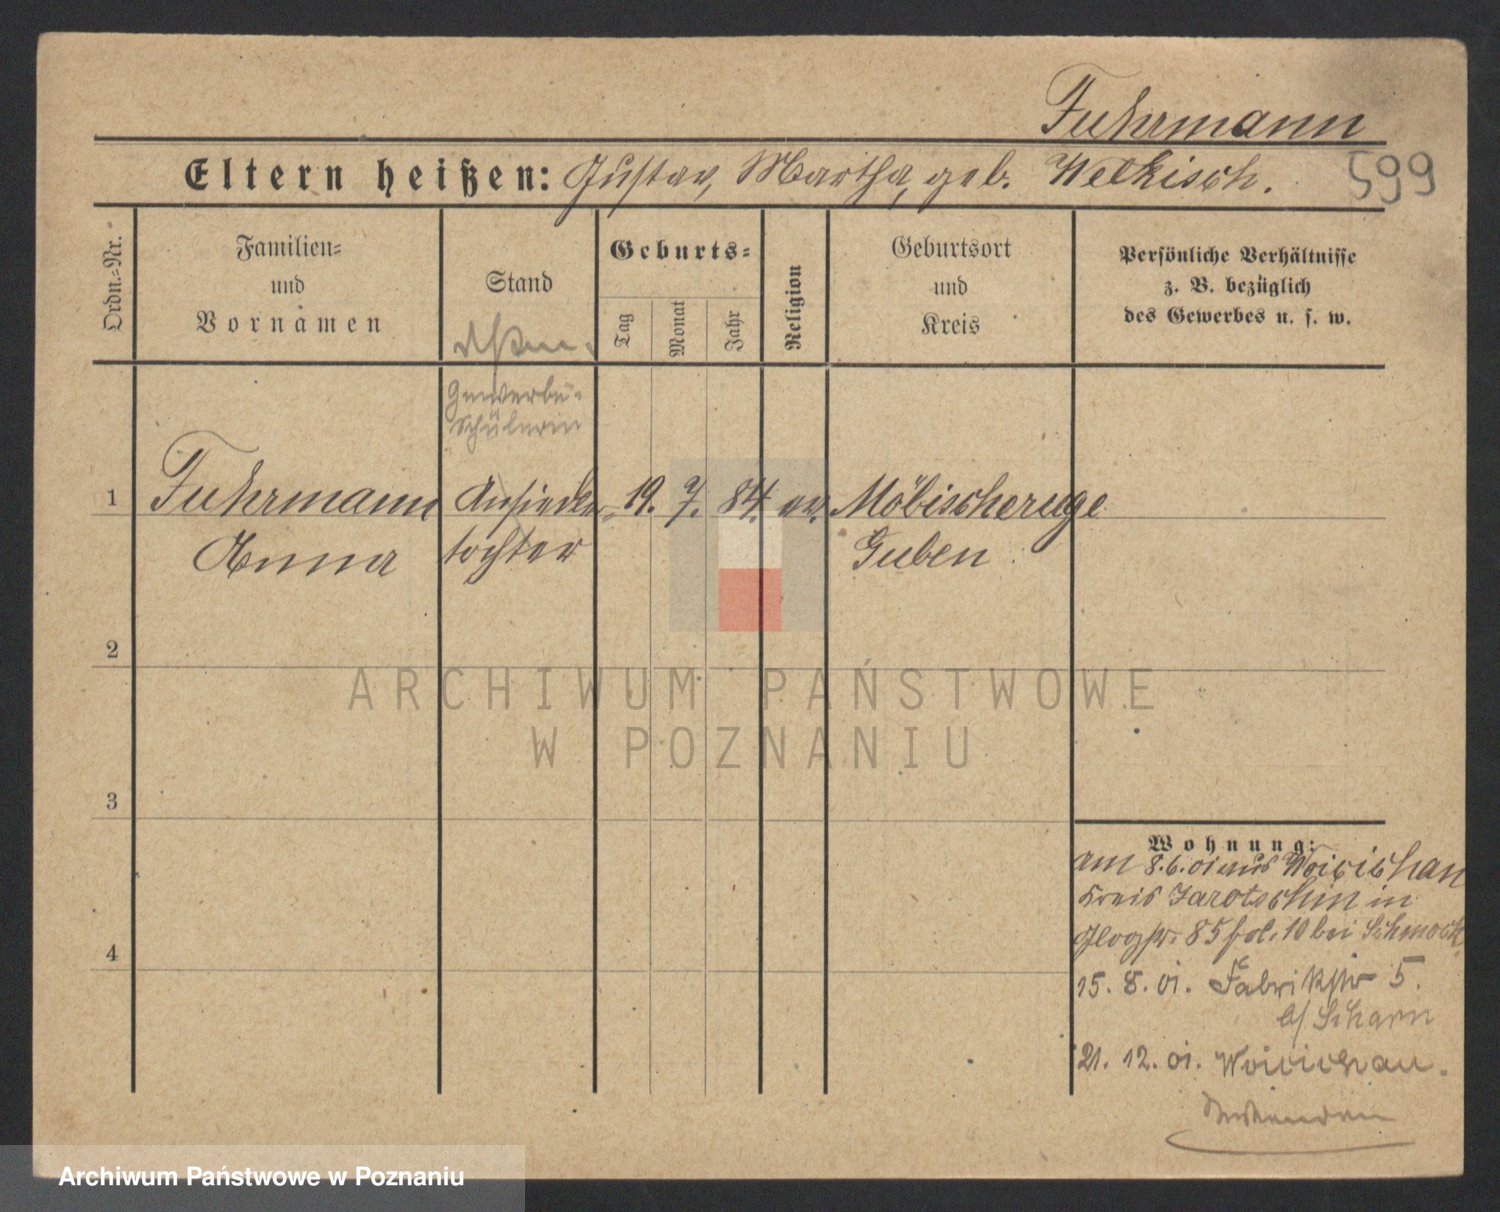 Fuhrmann
Eltern heißen: Gustav, Martha, geb. Welkisch.
599
Ordn.=Nr.
Familien=
und
Vornamen
Stand
Geburts=
Tag
Monat
Jahr
Religion
Geburtsort
und
Kreis
Persönliche Verhältnisse
z. B. bezüglich
des Gewerbes u. s. w.
Gewerbe-
Schülerin
1 Fuhrmann Ansiedler- 19. 7. 84. ev. Möbischeruge
Anna tochter Guben
2
ARCHIWUM PAŃSTWOWE
W POZNANIU
3
Wohnung:
am 8.6.01 aus Woicichau
Kreis Jarotschin in
Glogstr. 85 bei Schmock
4
15. 8. 01. Fabrikstr 5.
b/ Scharn
21. 12. 01. Woicichau.
Archiwum Państwowe w Poznaniu